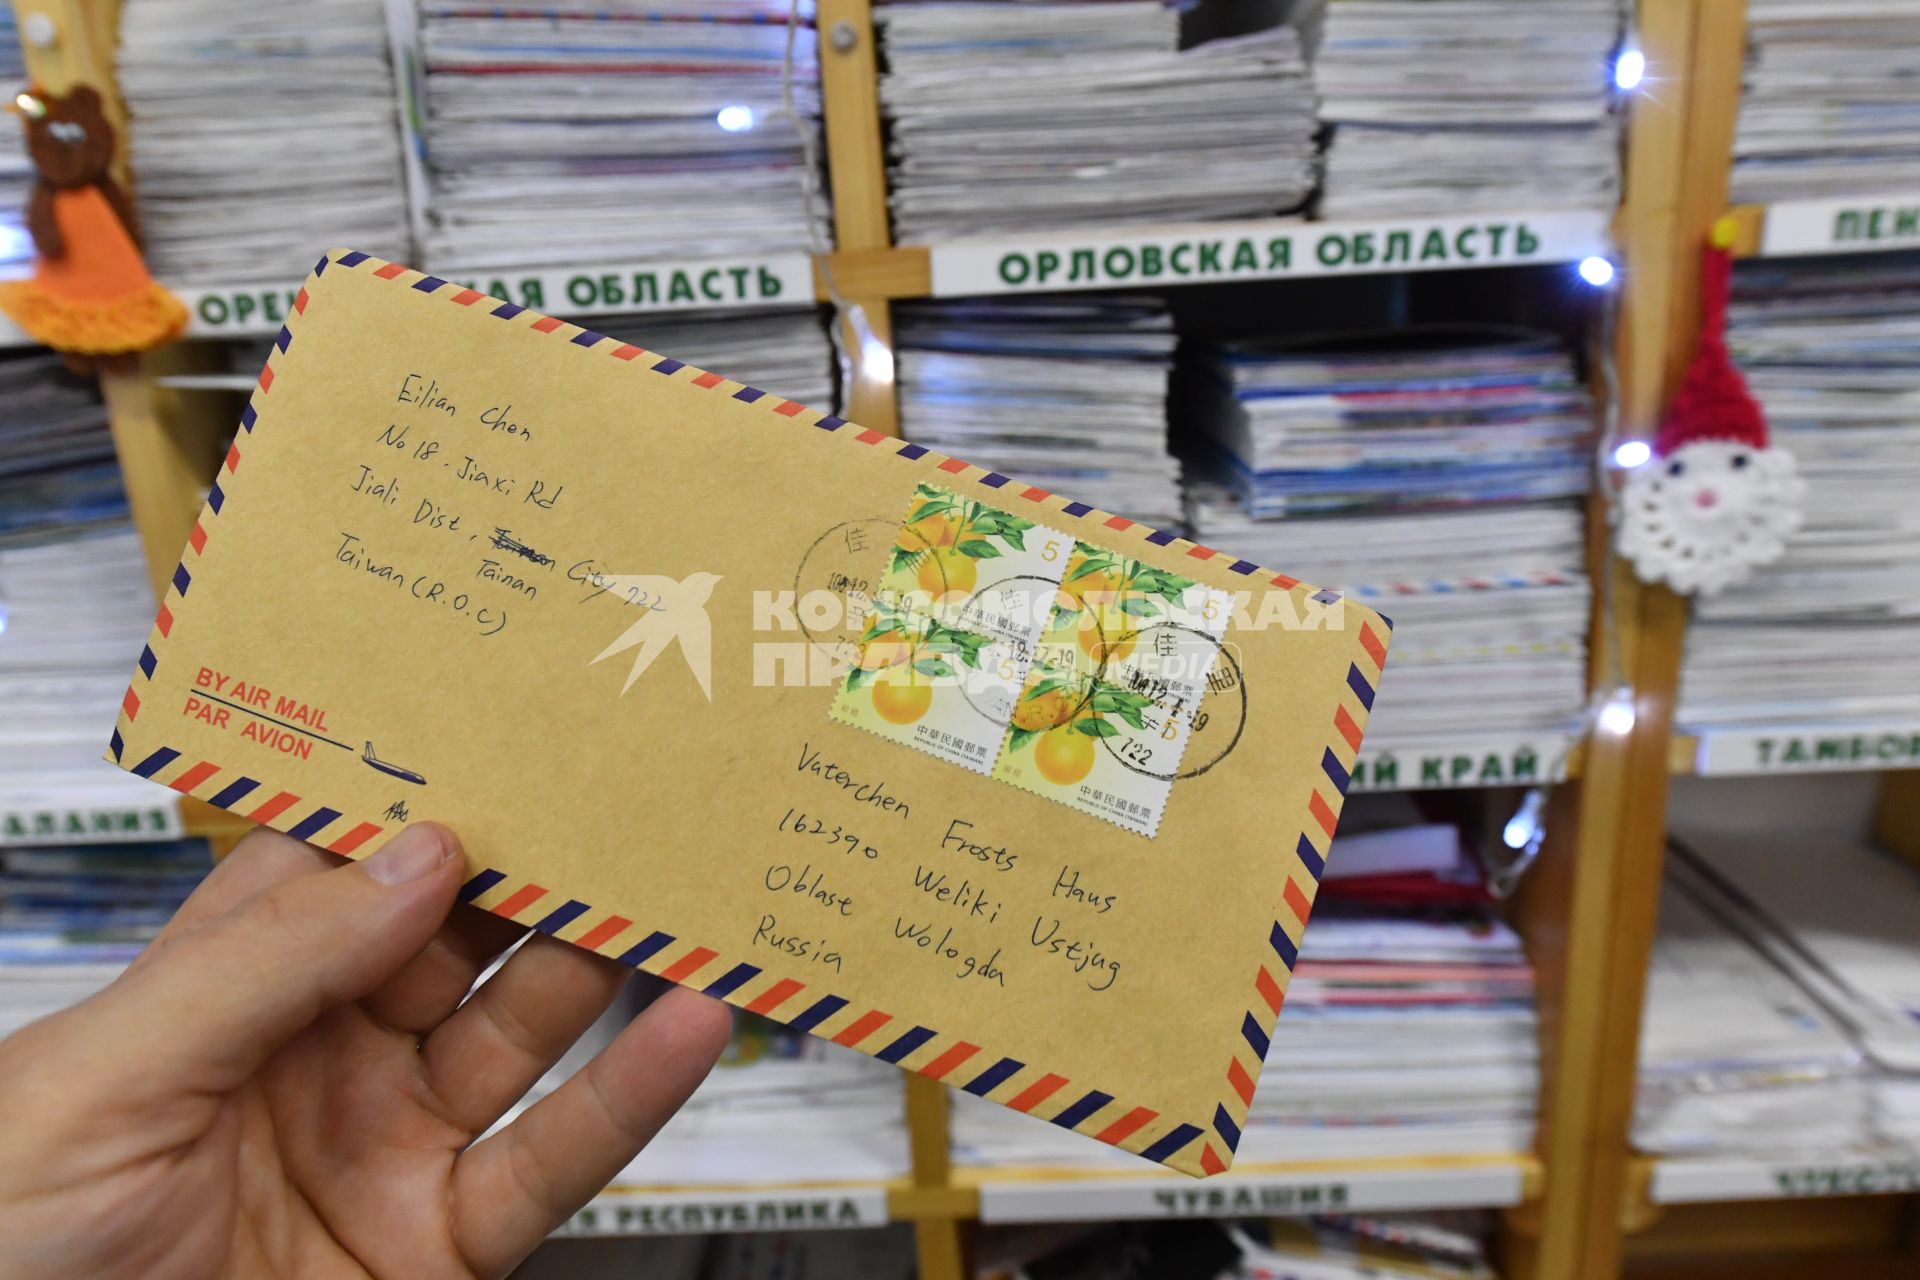 ОРЛОВСКАЯ ОБЛАСТЬ
ПЕН
ОРЕН АЯ ОБЛАСТЬ
Eilian Chen
No 18, Jiaxi Rd
Jiali Dist, City 722
Tainan
Taiwan (R.O.C)
BY AIR MAIL
PAR AVION
5
5
5
5
中華民國郵票
REPUBLIC OF CHINA (TAIWAN)
中華民國郵票
中華民國郵票
REPUBLIC OF CHINA (TAIWAN)
中華民國郵票
REPUBLIC OF CHINA (TAIWAN)
佳
佳
佳
722
КОМСОМОЛЬСКАЯ
ПРАВДА MEDIA
Vaterchen Frosts Haus
162390 Weliki Ustjug
Oblast Wologda
Russia
ИЙ КРАЙ
ТАМБОВ
АЛАНИЯ
Я РЕСПУБЛИКА
ЧУВАШИЯ